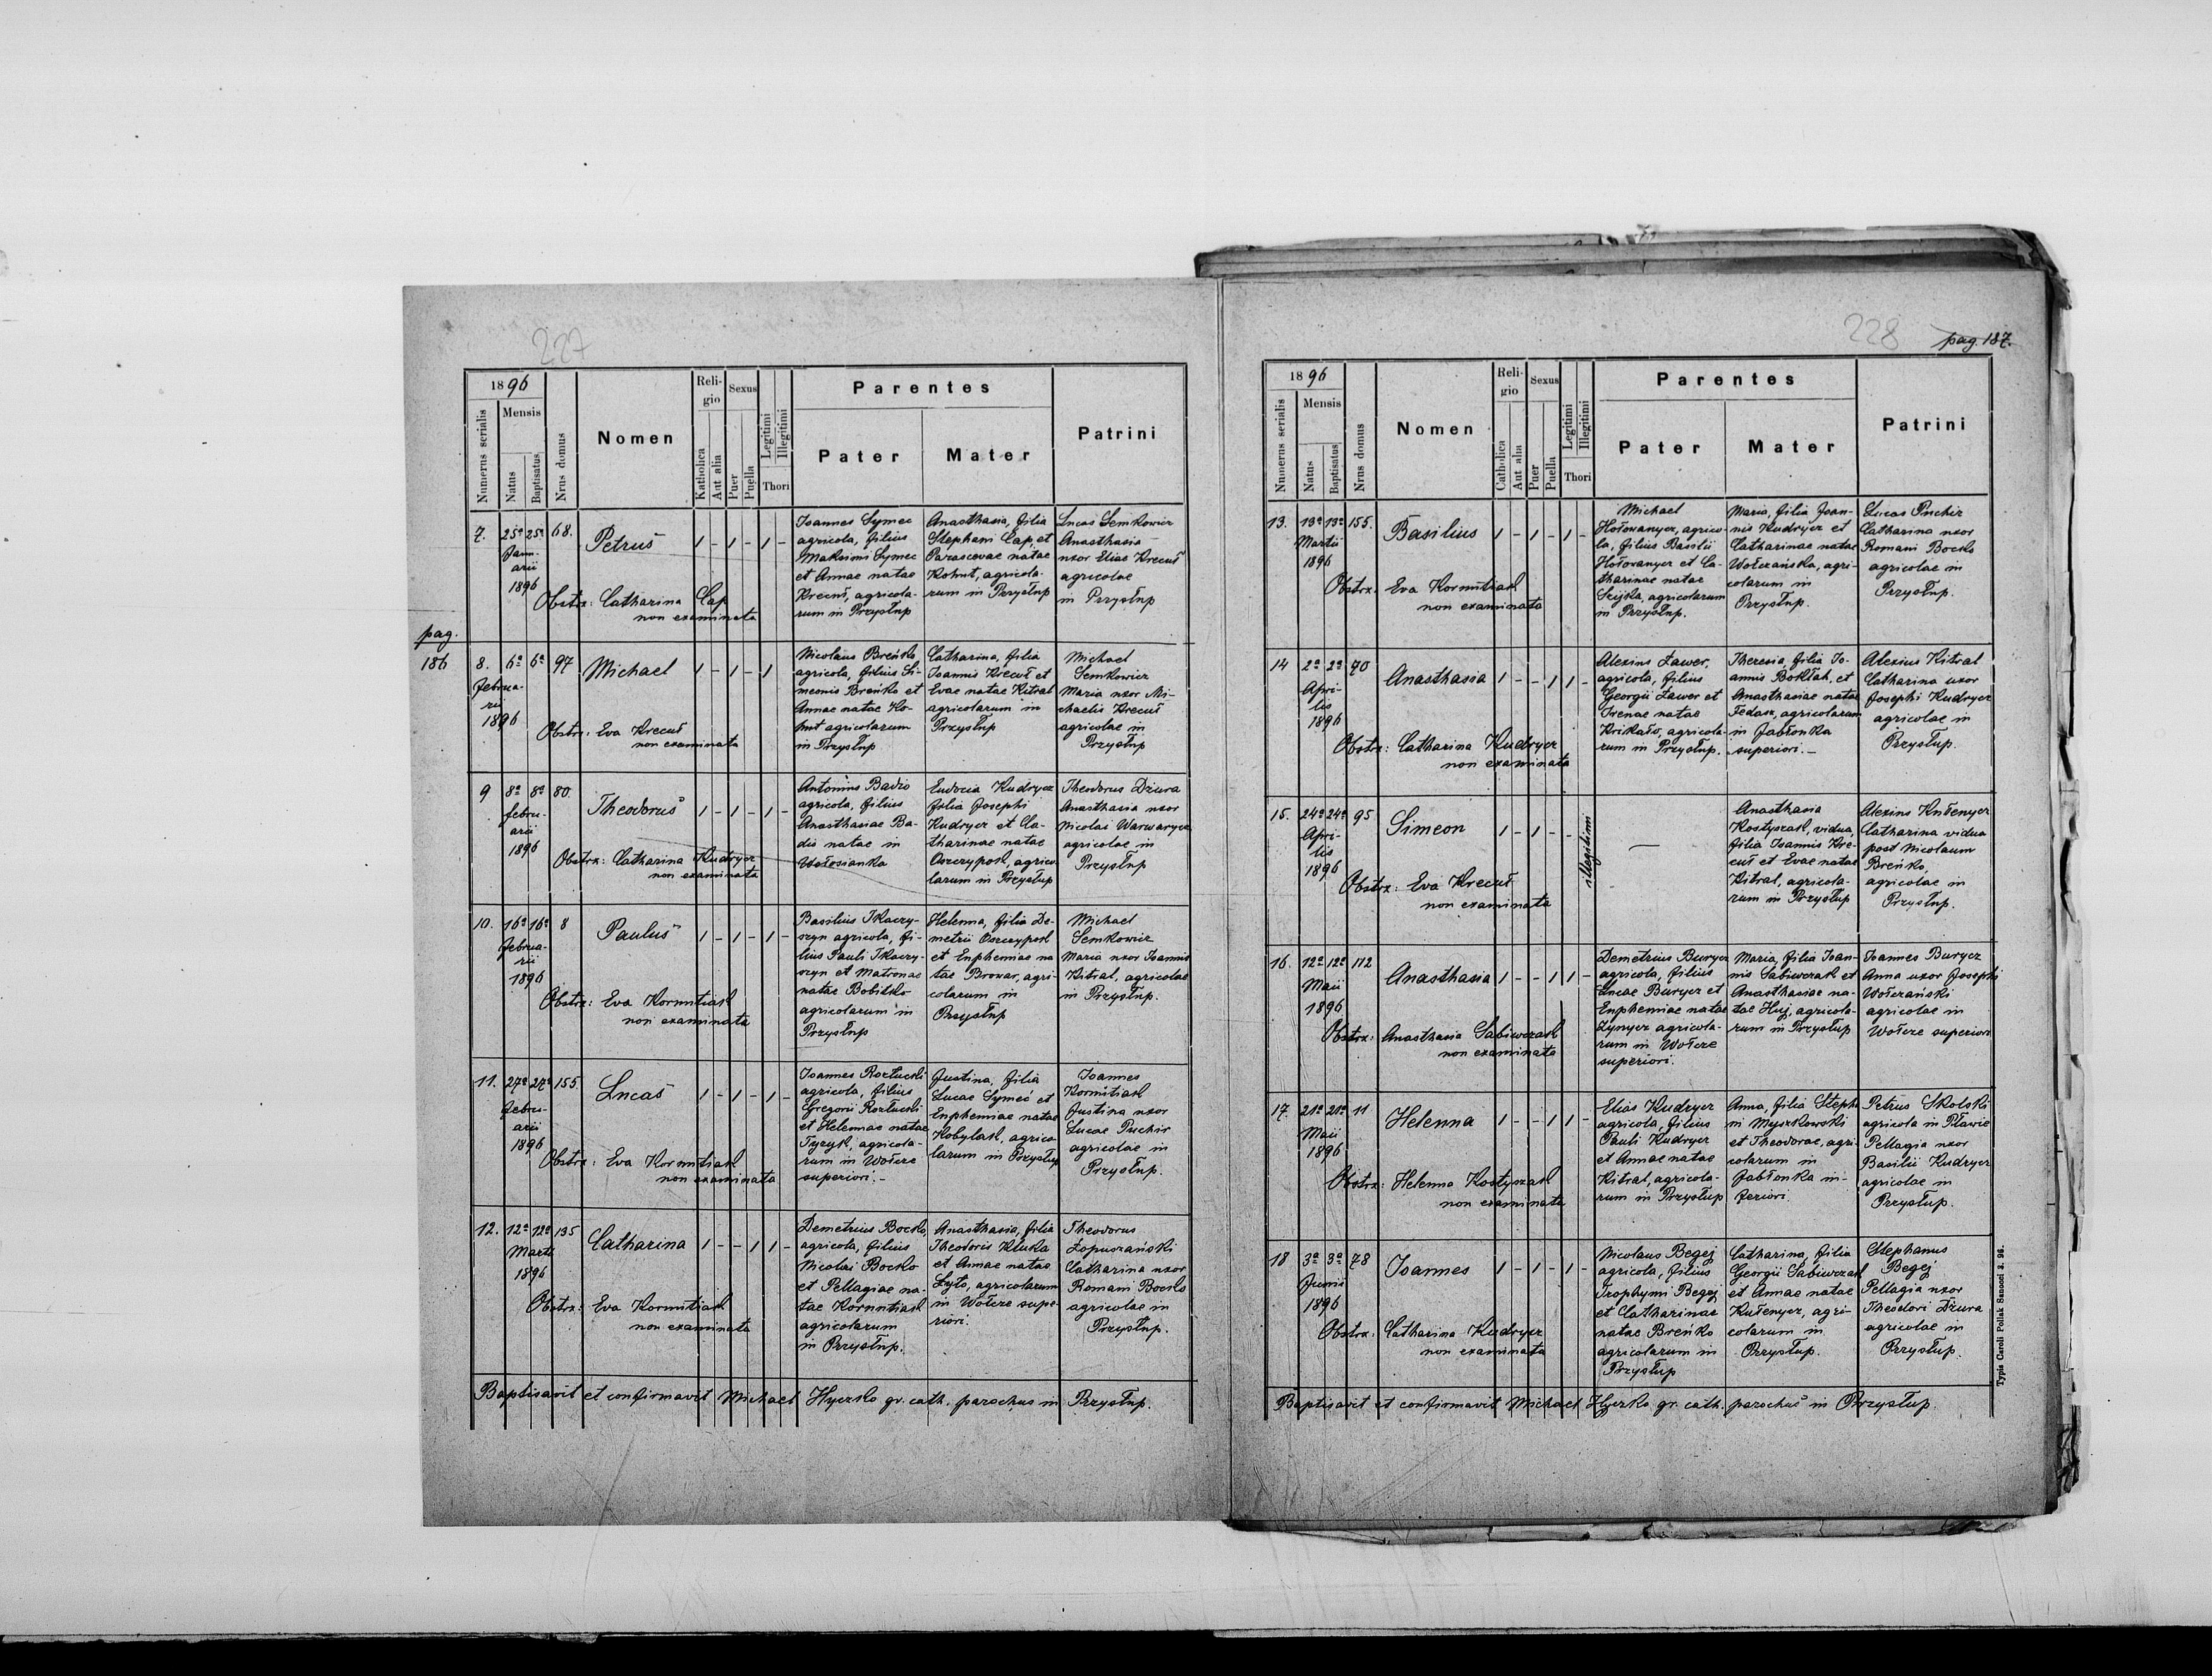 227
pag.
186
1896
Numerus serialis
Mensis
Natus
Baptisatus
Nrus domus
Nomen
Reli-
gio
Katholica
Aut alia
Sexus
Puer
Puella
Legitimi
Illegitimi
Thori
Parentes
Pater
Mater
Patrini
7. 25ª 25ª 68.
Janu-
arii
1896
Petrus 1 - 1 - 1 -
Obstrx: Catharina Cap
non examinata
Joannes Symec
agricola, filius
Maksimi Symec
et Annae natae
Krecuł, agricola-
rum in Przysłup
Anasthasia, filia
Stephani Cap, et
Parascevae natae
Kohut, agricola-
rum in Przysłup
Lucas Semkowicz
Anasthasia
uxor Eliae Krecuł
agricolae
in Przysłup
8. 6ª 6ª 97
Februa-
rii
1896
Michael 1 - 1 - 1
Obstrx: Eva Krecuł
non examinata
Nicolaus Breńko
agricola, filius Si-
meonis Breńko et
Annae natae Ko-
hut agricolarum
in Przysłup
Catharina, filia
Joannis Krecuł et
Evae natae Kitral
agricolarum in
Przysłup
Michael
Semkowicz
Maria uxor Mi-
chaelis Krecuł
agricolae in
Przysłup
9 8ª 8ª 80.
febru-
arii
1896
Theodorus 1 - 1 - 1 -
Obstrx: Catharina Kudrycz
non examinata
Antonius Badio
agricola, filius
Anasthasiae Ba-
dio natae in
Eudocia Kudrycz
filia Josephi
Kudrycz et Ca-
tharinae natae
Oszczypok, agrico-
larum in Przysłup
Theodorus Dziura
Anasthasia uxor
Nicolai Warwarycz
agricolae in
Przysłup
10. 16ª 16ª 8
februa-
rii
1896
Paulus 1 - 1 - 1 -
Obstrx: Eva Kornutiak
non examinata
Basilius Tkaczy-
szyn agricola, fi-
lius Pauli Tkaczy-
szyn et Matronae
natae Bobitko
agricolarum in
Przysłup
Helenna, filia De-
metrii Oszczypok
et Euphemiae na
tae Browar, agri-
colarum in
Przysłup
Michael
Semkowicz
Maria uxor Joannis
Kitral, agricolae
in Przysłup.
11. 27ª 27ª 155.
Febru-
arii
1896
Lucas 1 - 1 - 1 -
Obstrx: Eva Kornutiak
non examinata
Joannes Rozłucki
agricola, filius
Gregorii Rozłucki
et Helennae natae
Tyzyk, agricola-
rum in Wołcze
superiori.-
Justina, filia
Lucae Symeć et
Euphemiae natae
Kobylak, agrico-
larum in Przysłup
Joannes
Kornutiak
Justina uxor
Lucae Puchir
agricolae in
Przysłup.
12. 12ª 12ª 135
Martii
1896
Catharina 1 - - 1 1 -
Obstrx: Eva Kornutiak
non examinata
Demetrius Bocko,
agricola, filius
Nicolai Bocko
et Pellagiae na-
tae Kornutiak
agricolarum
in Przysłup.
Anasthasia, filia
Theodoris Kluka
et Annae natae
Łyło, agricolarum
in Wołcze supe-
riori.
Theodorus
Łopuszański
Catharina uxor
Romani Bocko
agricolae in
Przysłup.
Baptisavit et confirmavit Michael Hyczko gr. cath. parochus in Przysłup.
228
pag. 187.
1896
Numerus serialis
Mensis
Natus
Baptisatus
Nrus domus
Nomen
Reli-
gio
Catholica
Aut alia
Sexus
Puer
Puella
Legitimi
Illegitimi
Thori
Parentes
Pater
Mater
Patrini
13. 13ª 13ª 155.
Martii
1896
Basilius 1 - 1 - 1 -
Obstrx. Eva Kornutiak
non examinata
Michael
Hołowanycz, agrico-
la, filius Basilii
Hołowanycz et Ca-
tharinae natae
Szijka, agricolarum
in Przysłup.
Maria, filia Joan-
nis Kudrycz et
Catharinae natae
Wołczańska, agri-
colarum in
Przysłup.
Lucas Puchir
Catharina uxor
Romani Bocko
agricolae in
Przysłup.
14 2ª 2ª 70
Apri-
lis
1896
Anasthasia 1 - - 1 1 -
Obstrx: Catharina Kudrycz
non examinata
Alexius Ławer,
agricola, filius
Georgii Ławer et
Irenae natae
Krikało, agricola-
rum in Przysłup.
Theresia, filia Jo-
annis Bokłah, et
Anasthasiae natae
Fedasz, agricolarum
in Jabłonka
superiori.-
Alexius Kitral
Catharina uxor
Josephi Kudrycz
agricolae in
Przysłup.
15. 24ª 24ª 95
Apri-
lis
1896
Simeon 1 - 1 - -
illegitimi
Obstrx: Eva Krecuł
non examinata
—
Anasthasia
Kostyszak, vidua,
filia Joannis Kre-
cuł et Evae natae
Kitral, agricola-
rum in Przysłup
Alexius Kułenycz
Catharina vidua
post Nicolaum
Breńko,
agricolae in
Przysłup.
16. 12ª 12ª 112
Maii
1896
Anasthasia 1 - - 1 1 -
Obstrx: Anasthasia Sabiwczak
non examinata
Demetrius Burycz
agricola, filius
Lucae Burycz et
Euphemiae natae
Zynycz agricola-
rum in Wołcze
superiori.
Maria, filia Joan-
nis Sabiwczak et
Anasthasiae na-
tae Huj, agricola-
rum in Przysłup
Joannes Burycz
Anna uxor Josephi
Wołczański
agricolae in
Wołcze superiori
17. 21ª 21ª 11
Maii
1896
Helenna 1 - - 1 1 -
Obstrx: Helenna Kostyszak
non examinata
Elias Kudrycz
agricola, filius
Pauli Kudrycz
et Annae natae
Kitral, agricola-
rum in Przysłup
Anna, filia Stepha
ni Myszkowski
et Theodorae, agri-
colarum in
Jabłonka in-
feriori.
Petrus Skolski
agricola in Pławie
Pellagia uxor
Basilii Kudrycz
agricolae in
Przysłup.
18 3ª 3ª 78
Junii
1896
Joannes 1 - 1 - 1 -
Obstrx: Catharina Kudrycz
non examinata
Nicolaus Begej
agricola, filius
Trophymi Begej
et Catharinae
natae Breńko
agricolarum in
Przysłup
Catharina, filia
Georgii Sabiwczak
et Annae natae
Kułenycz, agri-
colarum in
Przysłup.
Stephanus
Begej
Pellagia uxor
Theodori Dziura
agricolae in
Przysłup.
Baptisavit et confirmavit Michael Hyczko gr. cath. parochus in Przysłup.
Typis Caroli Pollak Sanoci 3. 96.